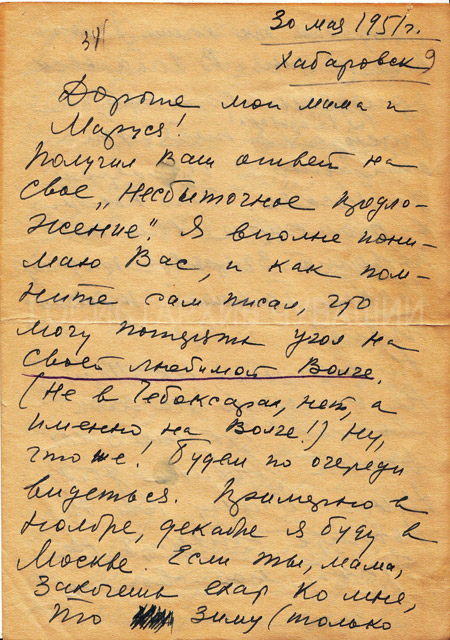 34
30 мая 1951 г.
Хабаровск 9
Дорогие мои мама и
Маруся!
Получил Ваш ответ на
свое „Несбыточное предло-
жение". Я вполне пони-
маю Вас, и как пом-
ните сам писал, что
могу потерять угол на
своей любимой Волге.
(Не в Чебоксарах, нет, а
именно на Волге!) Ну,
что же! Будем по очереди
видеться. Примерно в
ноябре, декабре я буду в
Москве. Если ты, мама,
захочешь ко мне,
то зиму (только